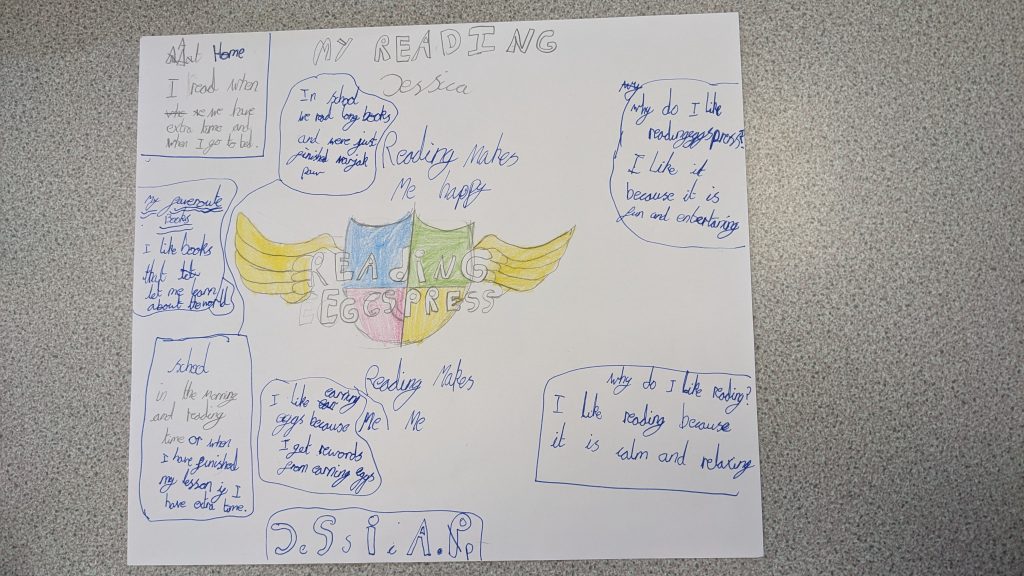 MY READING
Jessica
Home
I read when
we have
extra tame and
when I go to bed.
In school
we read long books
and were just
finished
paw
Reading Makes
Me happy
why
why do I like
readingeggspress?
I Like it
because it is
fun and entertaining
My
books
I like books
that
let me learn
about the world
READING
EGGSPRESS
school
in the morning
and reading
time or when
I have finished
my lesson if I
have extra tame.
Reading Makes
Me Me
I like earning
eggs because
I get rewords
from earning eggs
why do I like reading?
I like reading because
it is calm and relaxing